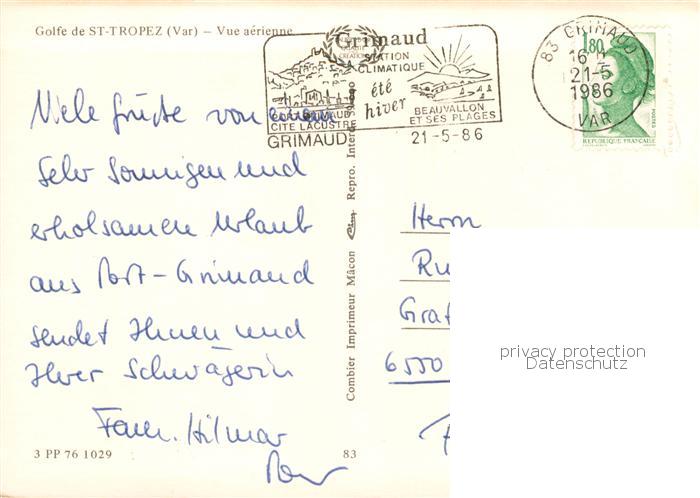 Golfe de ST-TROPEZ (Var) — Vue aérienne
Grimaud
STATION
CLIMATIQUE
été
hiver
PORT GRIMAUD
CITE LACUSTRE
GRIMAUD
BEAUVALLON
ET SES PLAGES
21-5-86
83 GRIMAUD
16 H
21-5
1986
VAR
1,80
REPUBLIQUE FRANÇAISE
Viele Grüße von einem
sehr sonnigen und
erholsamen Urlaub
aus Port-Grimaud
sendet Ihnen und
Ihrer Schwägerin
Fam. Hilmar
Combier Imprimeur Mâcon
Repro. Interdite
Herrn
Ru
Graf
6550
privacy protection
Datenschutz
3 PP 76 1029
83